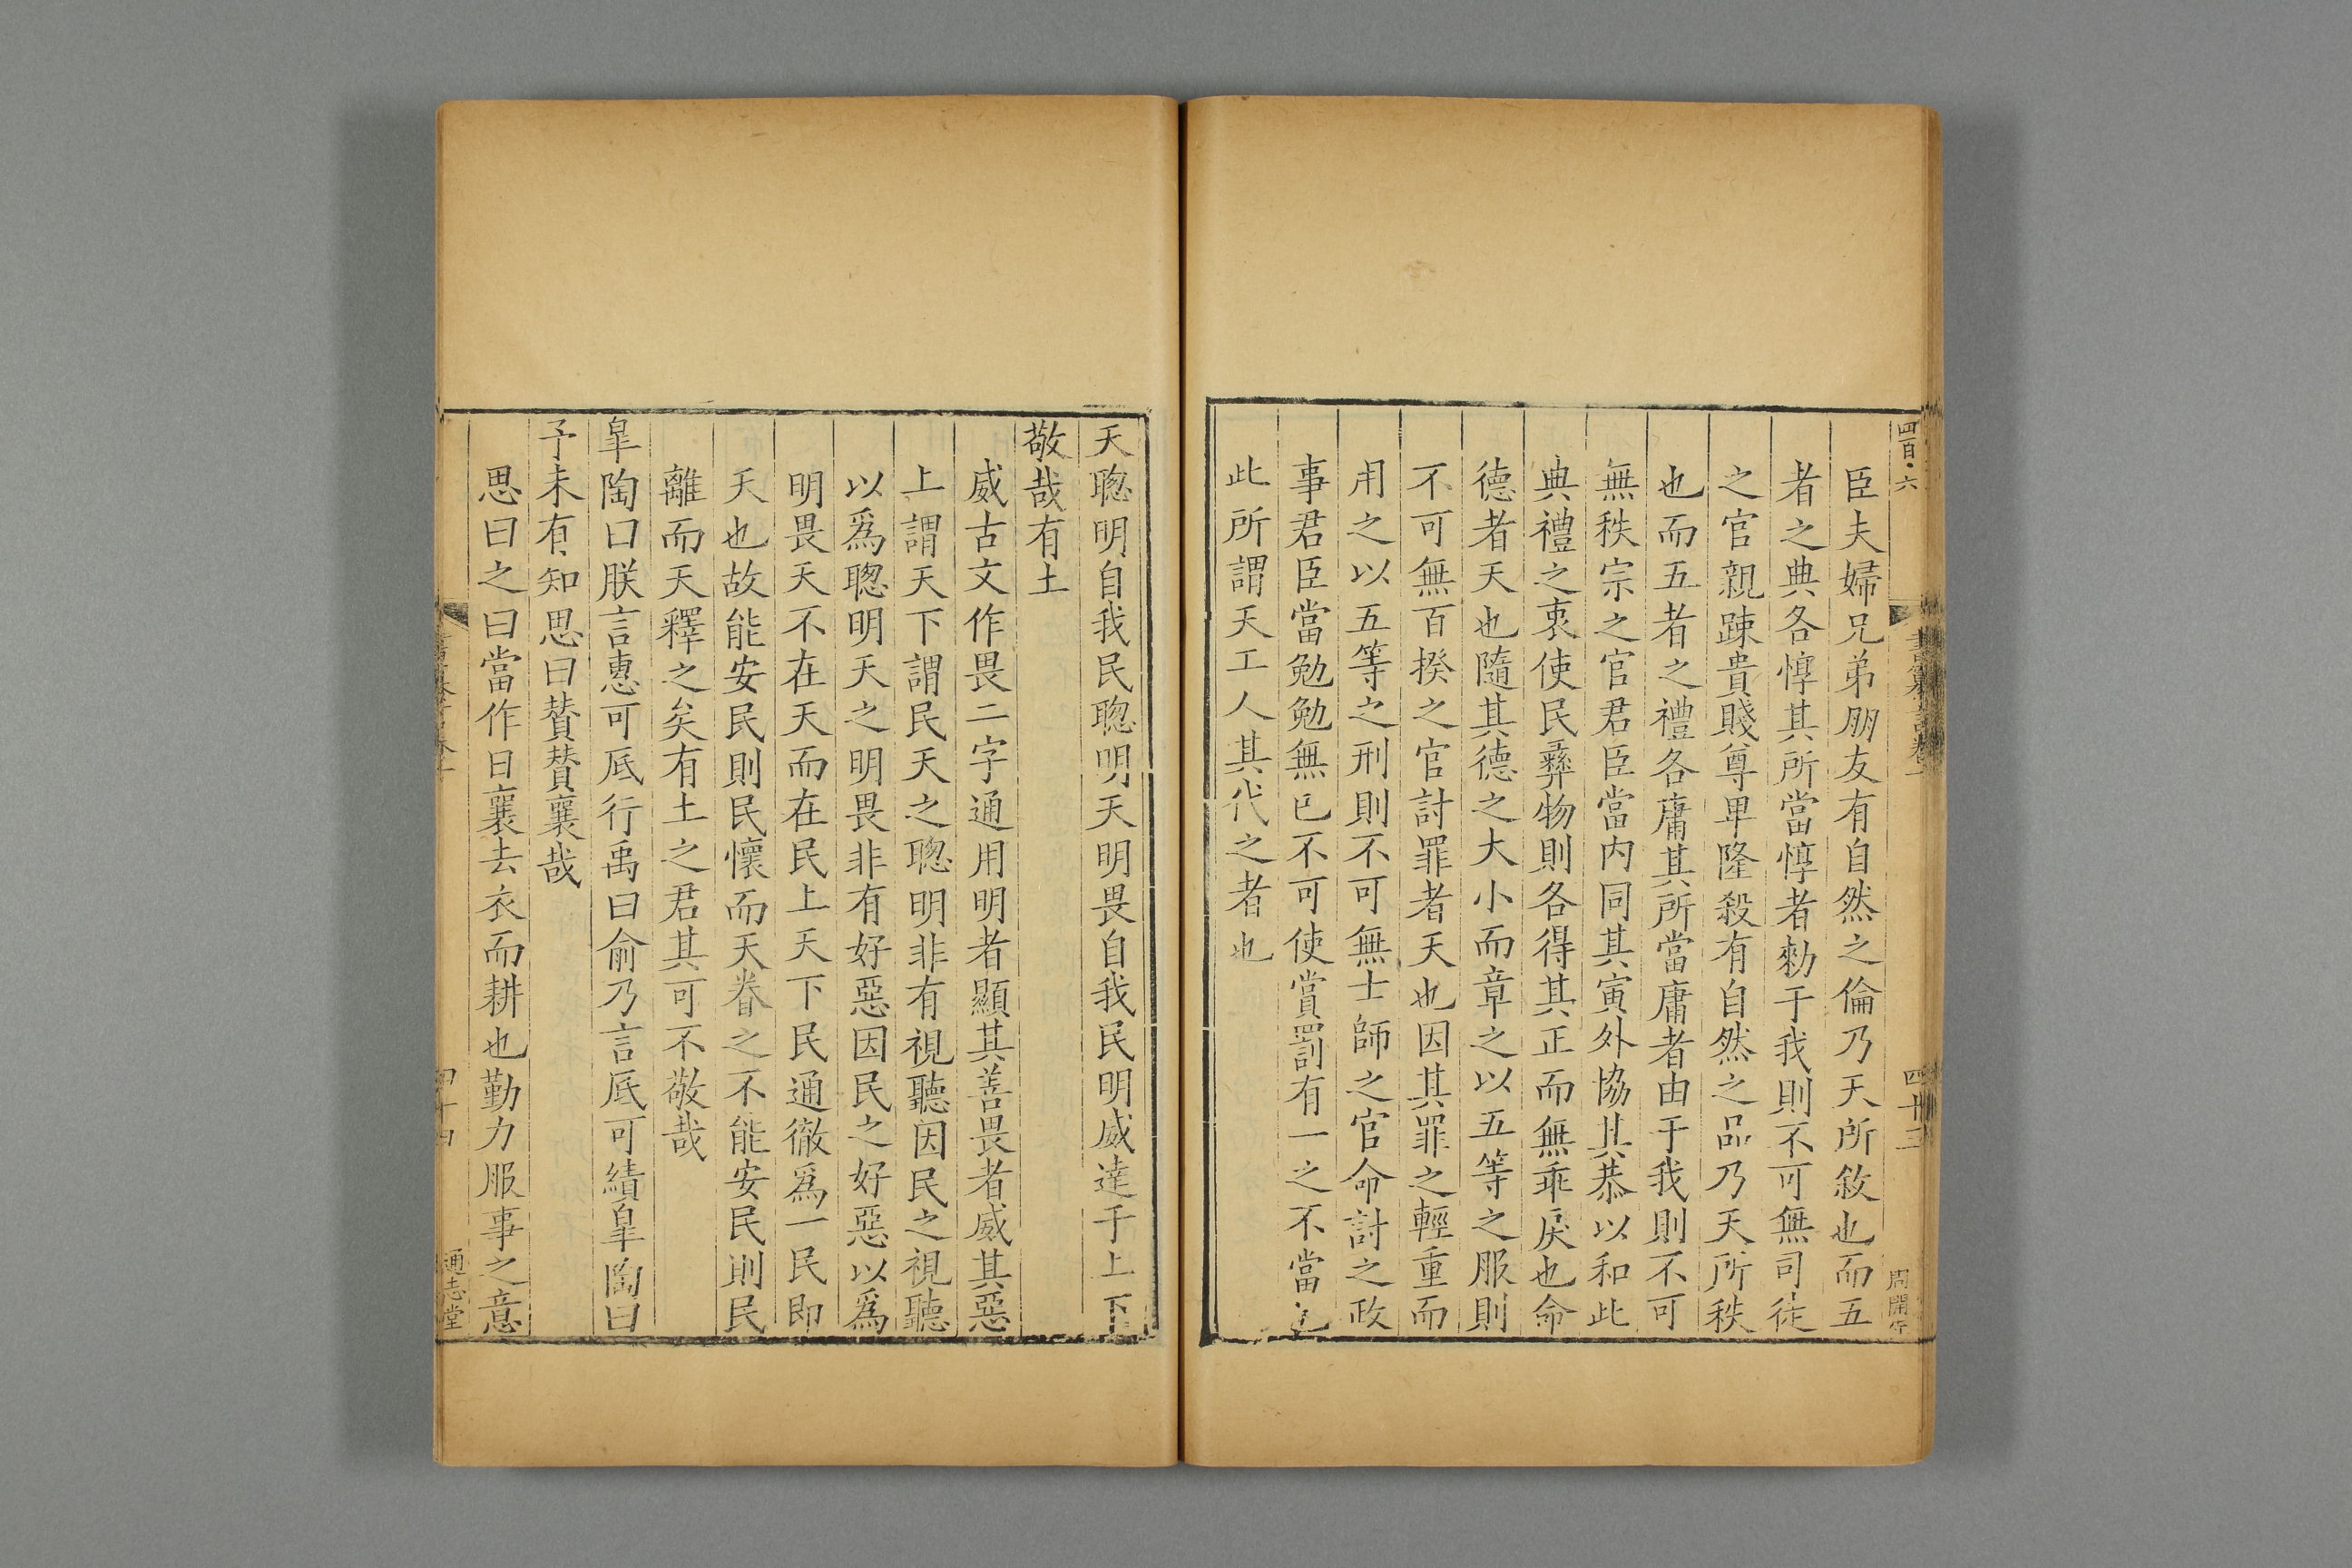 四百六
四十三
臣夫婦兄弟朋友有自然之倫乃天所敘也而五
者之典各惇其所當惇者勑于我則不可無司徒
之官親踈貴賤尊卑隆殺有自然之品乃天所秩
也而五者之禮各庸其所當庸者由于我則不可
無秩宗之官君臣當内同其寅外協其恭以和此
典禮之衷使民彛物則各得其正而無乖戾也命
德者天也隨其德之大小而章之以五等之服則
不可無百揆之官討罪者天也因其罪之輕重而
用之以五等之刑則不可無士師之官命討之政
事君臣當勉勉無已不可使賞罰有一之不當也
此所謂天工人其代之者也
天聦明自我民聦明天明畏自我民明威達于上下
敬哉有土
威古文作畏二字通用明者顯其善畏者威其惡
上謂天下謂民天之聦明非有視聽因民之視聽
以爲聦明天之明畏非有好惡因民之好惡以爲
明畏天不在天而在民上天下民通徹爲一民即
天也故能安民則民懷而天眷之不能安民則民
離而天釋之矣有土之君其可不敬哉
臯陶曰朕言惠可厎行禹曰俞乃言厎可績臯陶曰
予未有知思曰贊贊襄哉
思曰之曰當作日襄去衣而耕也勤力服事之意
通志堂